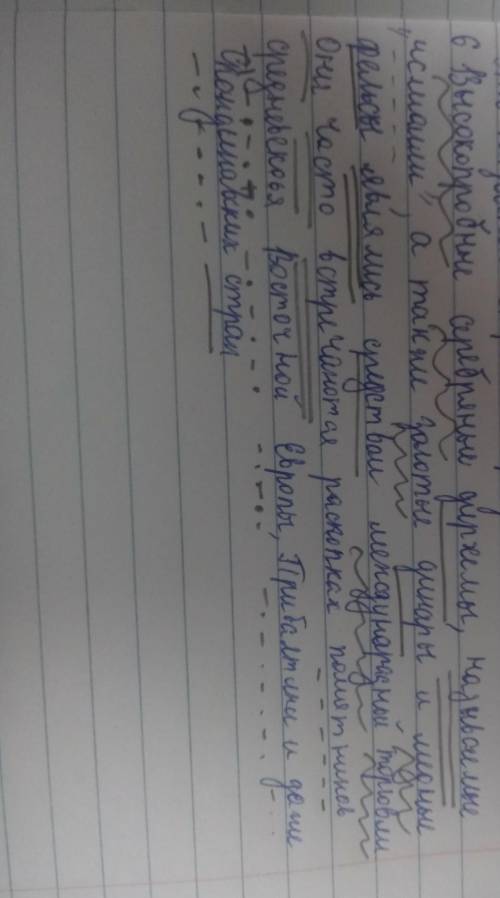 6 Высокопробные серебряные дирхемы, называемые
исмаили, а также золотые динары и медные
фельсы являлись средством международный торговли
Они часто встречаются раскопках памятников
средневековья Восточной Европы, Прибалтики и даже
Скандинавских стран